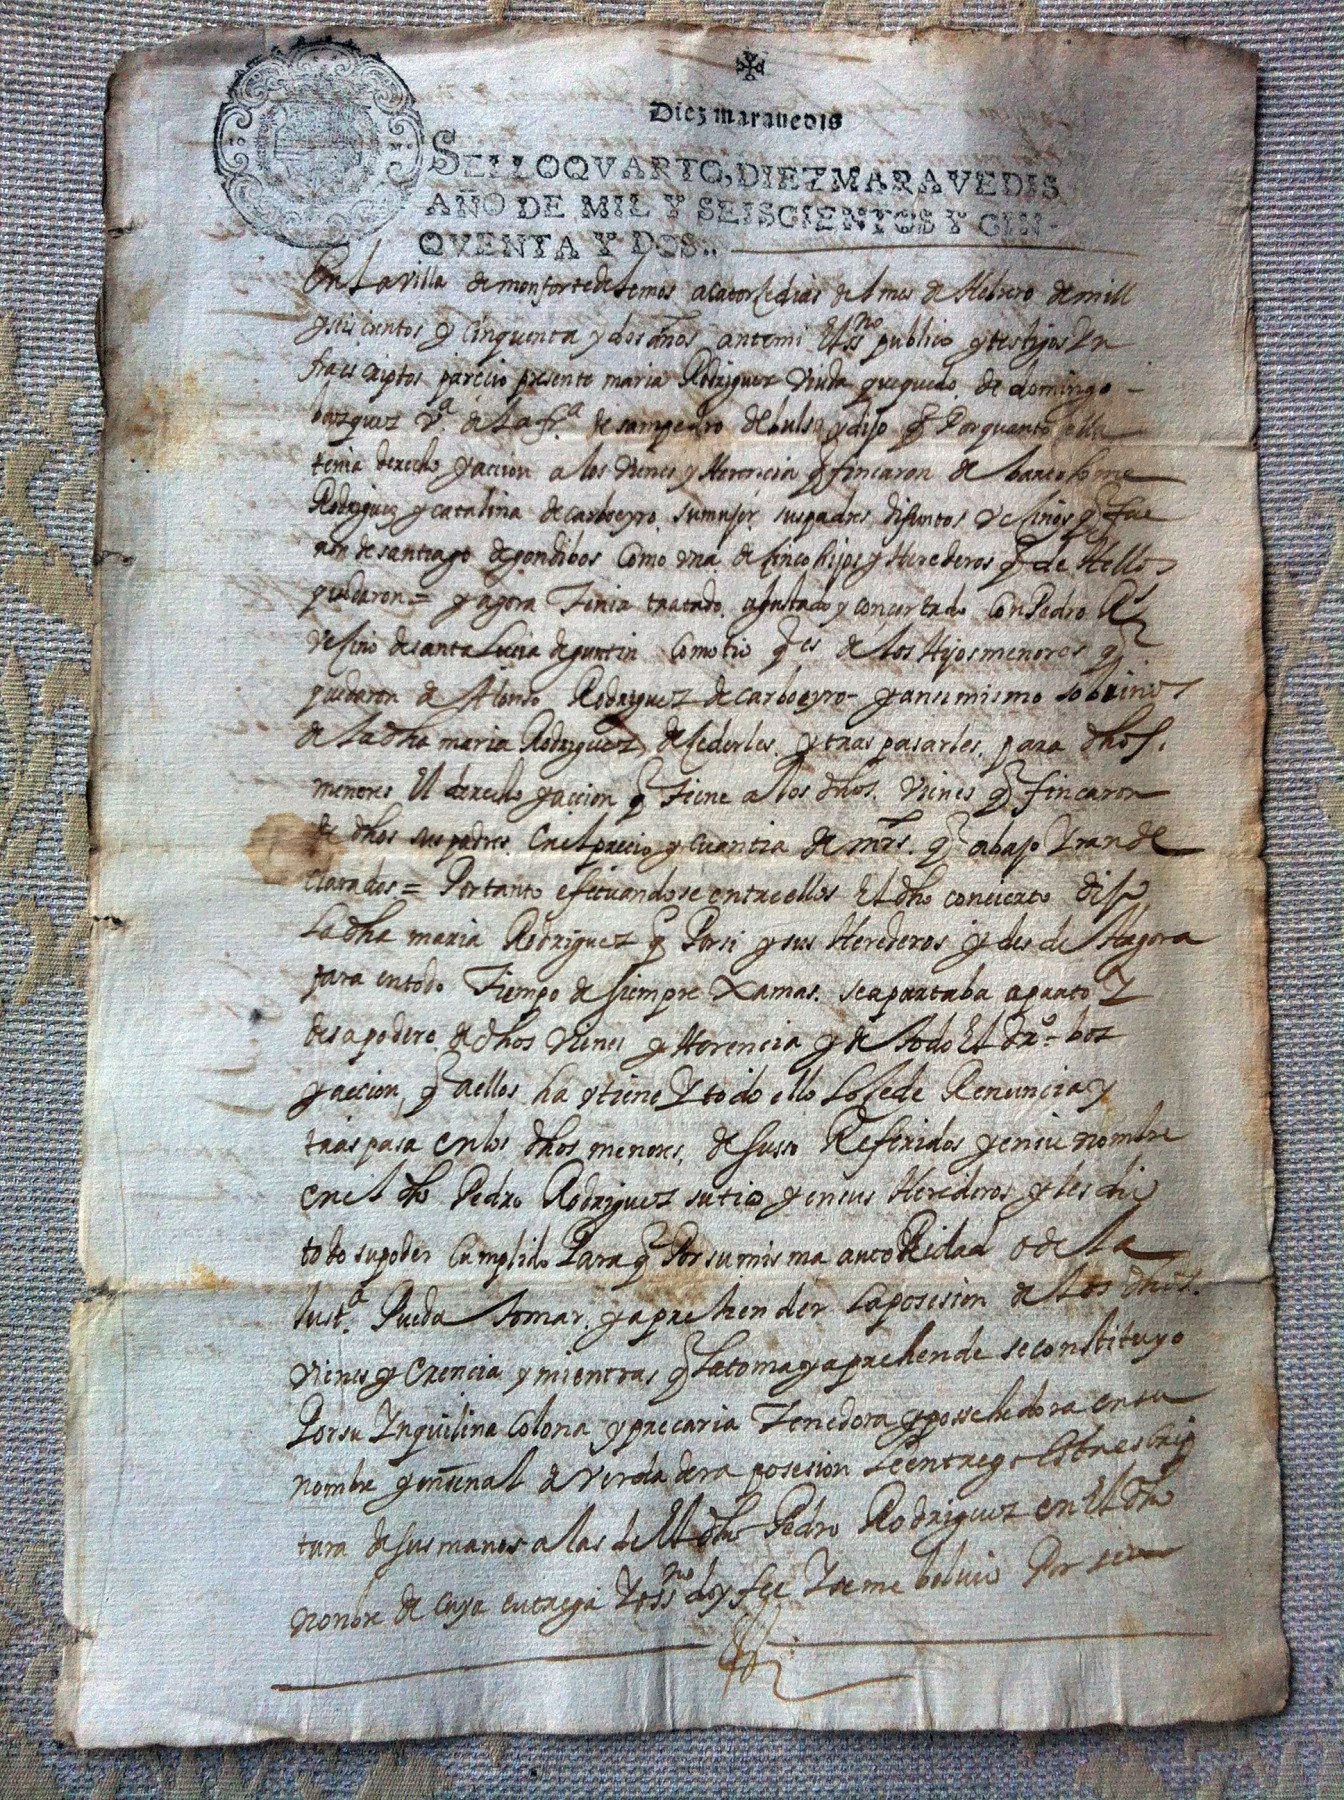 Diez maravedis
SELLO QVARTO, DIEZ MARAVEDIS
AÑO DE MIL Y SEISCIENTOS Y CIN-
QVENTA Y DOS..
En La villa de monforte de Lemos a Catorse dias del mes de Hebrero de mill
y seiscientos y Cinquenta y dos años antemi El ssno publico y testigos Yn
fraescriptos parecio presente maria Rodriguez Viuda que quedo de domingo
bazquez va de La fra de sampedro de bulso y dijo q Por quanto ella
tenia derecho y accion a los vienes y Herencia q fincaron de bartolome
Rodriguez y catalina de carboeyro su muger sus padres difuntos veSinos q fue
ron de santiago de gondibos Como una de Sinco hijos y Herederos q de Hellos
quedaron = y agora Tenia tratado ajustado y concertado Con Pedro Rs
veSino de santa Lucia de guntin Como tio q es de los Hijos menores q
quedaron de Alonso Rodriguez de carboeyro y ansimismo sobrinos
de La dha maria Rodriguez de Sederles y traspasarles para dhos
menores El derecho y accion q Tiene a los dhos Vienes q fincaron
de dhos sus padres en el precio y cuantia de mrs q abajo Yran de
clarados = Por tanto efetuandose entre ellos El dho concierto dijo
La dha maria Rodriguez q Por si y sus Herederos y desde Hagora
para en todo Tiempo de Siempre Xamas se apartaba aparto Y
desapodero de dhos vienes y Herencia y de todo El dro boz
y accion q a ellos ha y tiene Y todo ello Lo Sede Renuncia y
traspasa en los dhos menores de suso Referidos y en su nombre
en el dho Pedro Rodriguez su tio y en sus Herederos y les dio
todo su poder Cumplido Para q Por su misma autoRidad o de La
Justa Pueda tomar y aprehender La posesion de Los dhos
vienes y Erencia y mientras q La toma y aprehende se constituyo
Por su Ynquilina Colona y precaria Tenedora y possehedora en su
nombre y en señal de verdadera posesion Le entrego Esta escrip
tura de sus manos a las de El dho Pedro Rodriguez en El dho
nonbre de cuya entrega Yo ssno doy fee Y se me bolvio Por